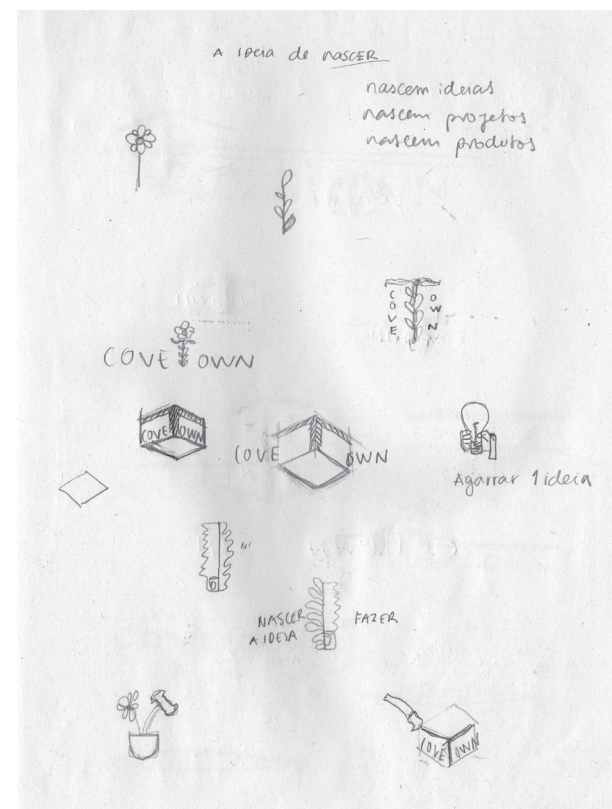 A IDEIA de NASCER
nascem ideias
nascem projetos
nascem produtos
COVE OWN
COVE OWN
COVE OWN
COVE OWN
Agarrar 1 ideia
NASCER FAZER
A IDEIA
COVE OWN